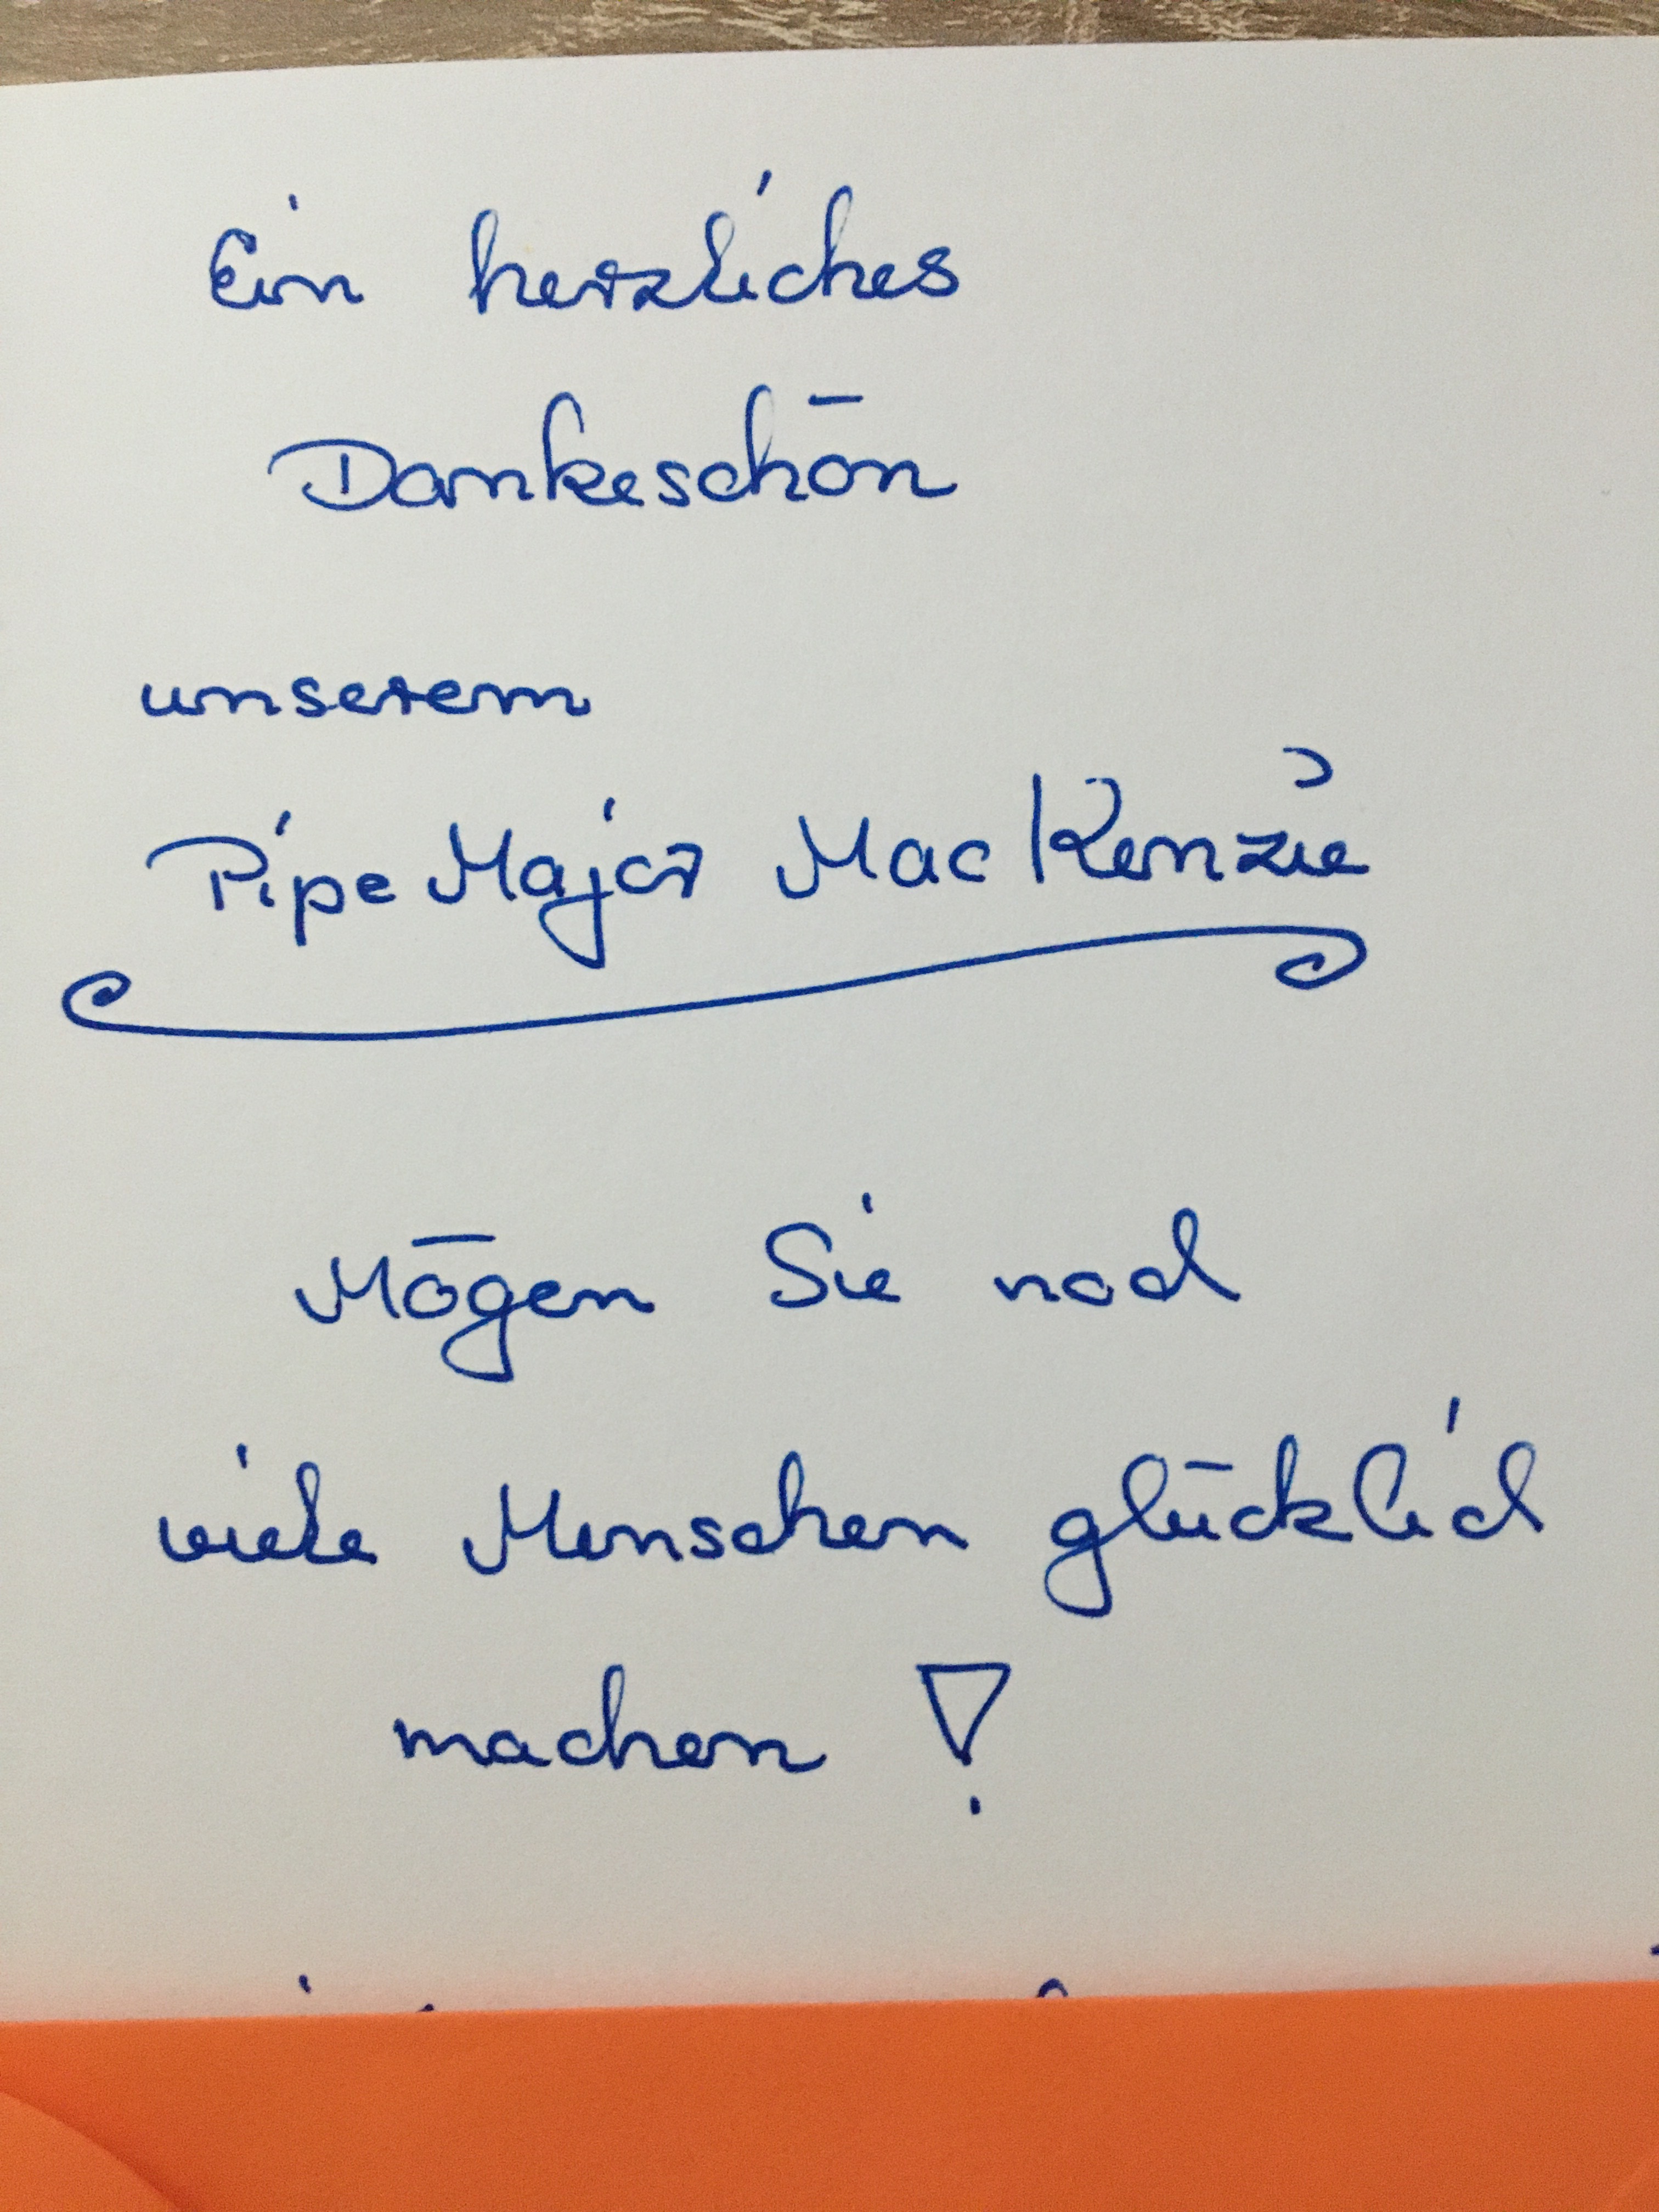 Ein herzliches
Dankeschön
unserem
Pipe Major MacKenzie
Mögen Sie noch
viele Menschen glücklich
machen !